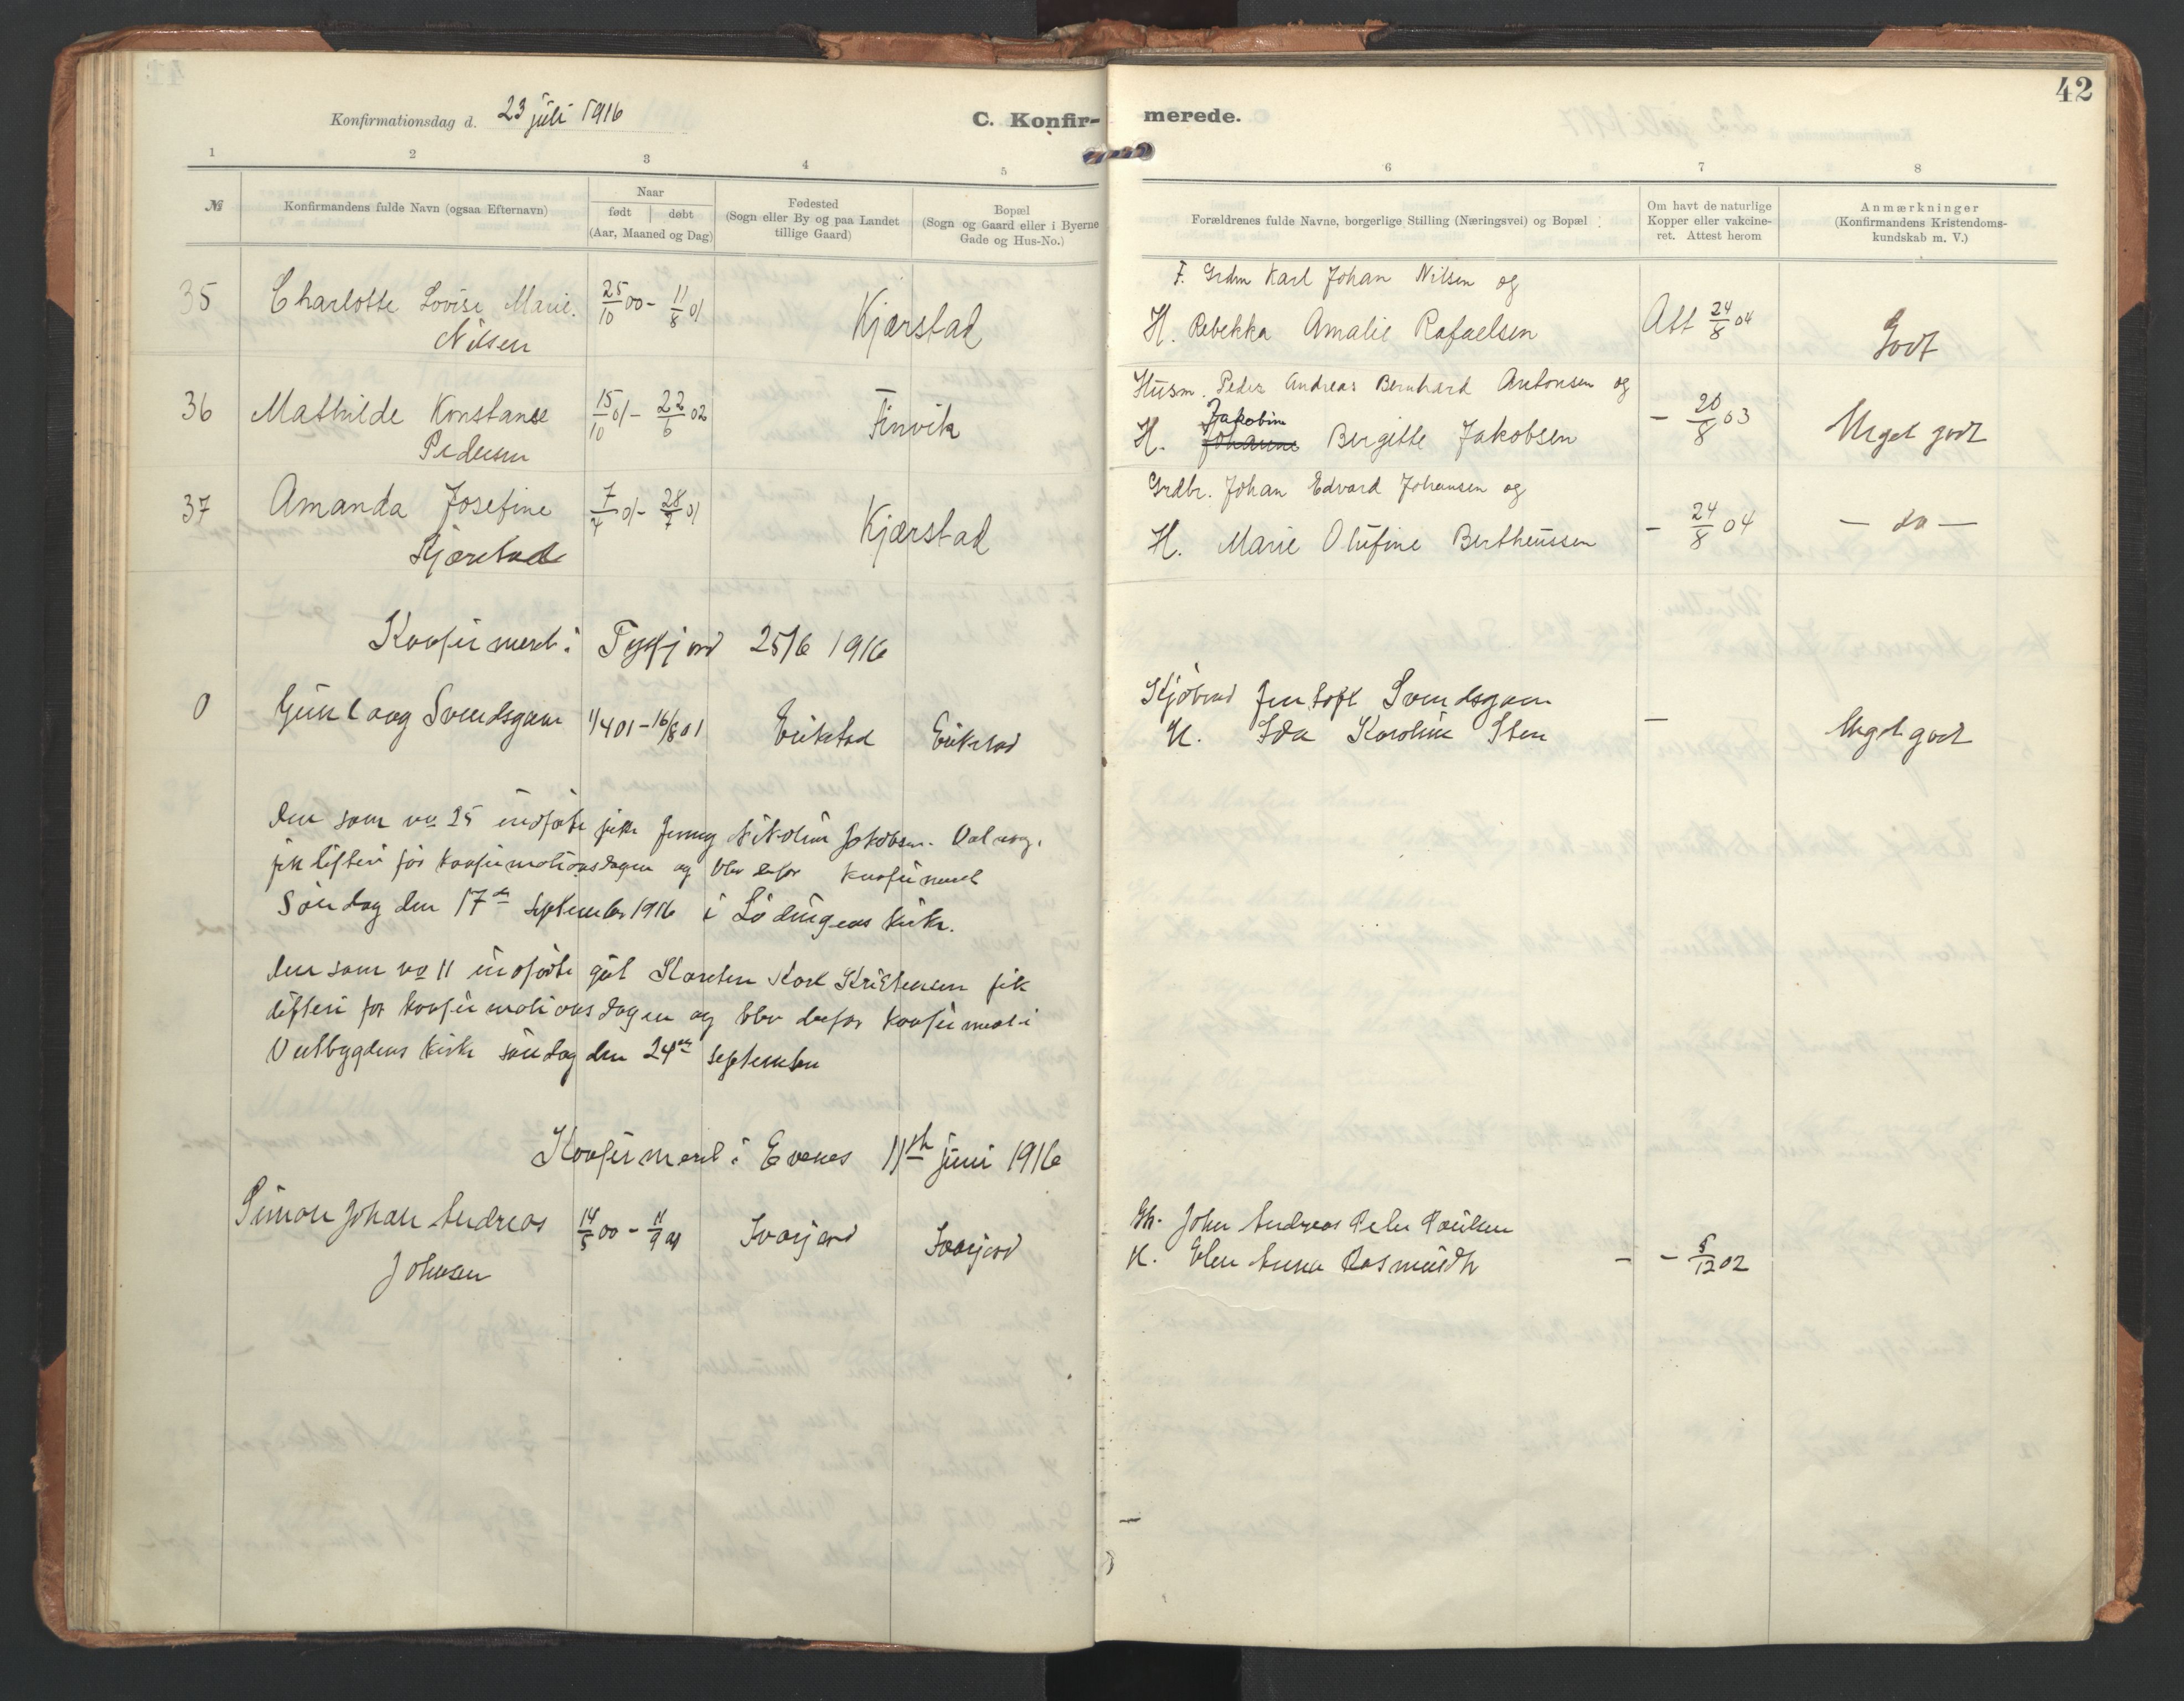 42
Konfirmationsdag d. 23 juli 1916
C. Konfir-
merede.
1 2 3 4 5 6 7 8
№
Konfirmandens fulde Navn (ogsaa Efternavn)
Naar
født | døbt
(Aar, Maaned og Dag)
Fødested
(Sogn eller By og paa Landet
tillige Gaard)
Bopæl
(Sogn og Gaard eller i Byerne
Gade og Hus-No.)
Forældrenes fulde Navne, borgerlige Stilling (Næringsvei) og Bopæl
Om havt de naturlige
Kopper eller vakcine-
ret. Attest herom
Anmærkninger
(Konfirmandens Kristendoms-
kundskab m. V.)
35 Charlotte Lovise Marie 25/10 00 - 11/8 01 Kjærstad F. Grdm Karl Johan Nilsen og
Nilsen H. Rebekka Amalie Rafaelsen Att 24/8 04 Godt
36 Mathilde Konstanse 15/10 01 - 22/6 02 Finvik Husm. Peder Andreas Bernhard Antonsen og
Pedersen H. Jakobine Bergitte Jakobsen - 20/8 03 Meget godt
37 Amanda Josefine 7/4 01 - 28/7 01 Kjærstad Grdbr. Johan Edvard Johansen og
Kjærstad H. Marie Olufine Bertheussen - 24/8 04 - do -
Konfirmert i Tysfjord 25/6 1916
0 Gunlaug Svendsgam 1/4 01 - 16/8 01 Erikstad Erikstad Jentoft Svendsgam
H. Ida Karoline Sten - Meget godt
Den som no 25 indførte pike Jenny Nikoline Jakobsen.
fik difteri før konfirmationsdagen og blev derfor konfirmeret
Søndag den 17de september 1916 i Lødingens kirke.
Den som no 11 indførte gut Karsten Karl Kristensen fik
difteri før konfirmationsdagen og blev derfor konfirmert i
Vestbygdens kirke søndag den 24de september
Konfirmert i Evenes 11te juni 1916
Simon Johan Andreas 14/5 00 - 11/9 01
Johnsen
John Andreas Peder Paulsen
H. Elen Anna Rasmusdtr - - 5/12 02